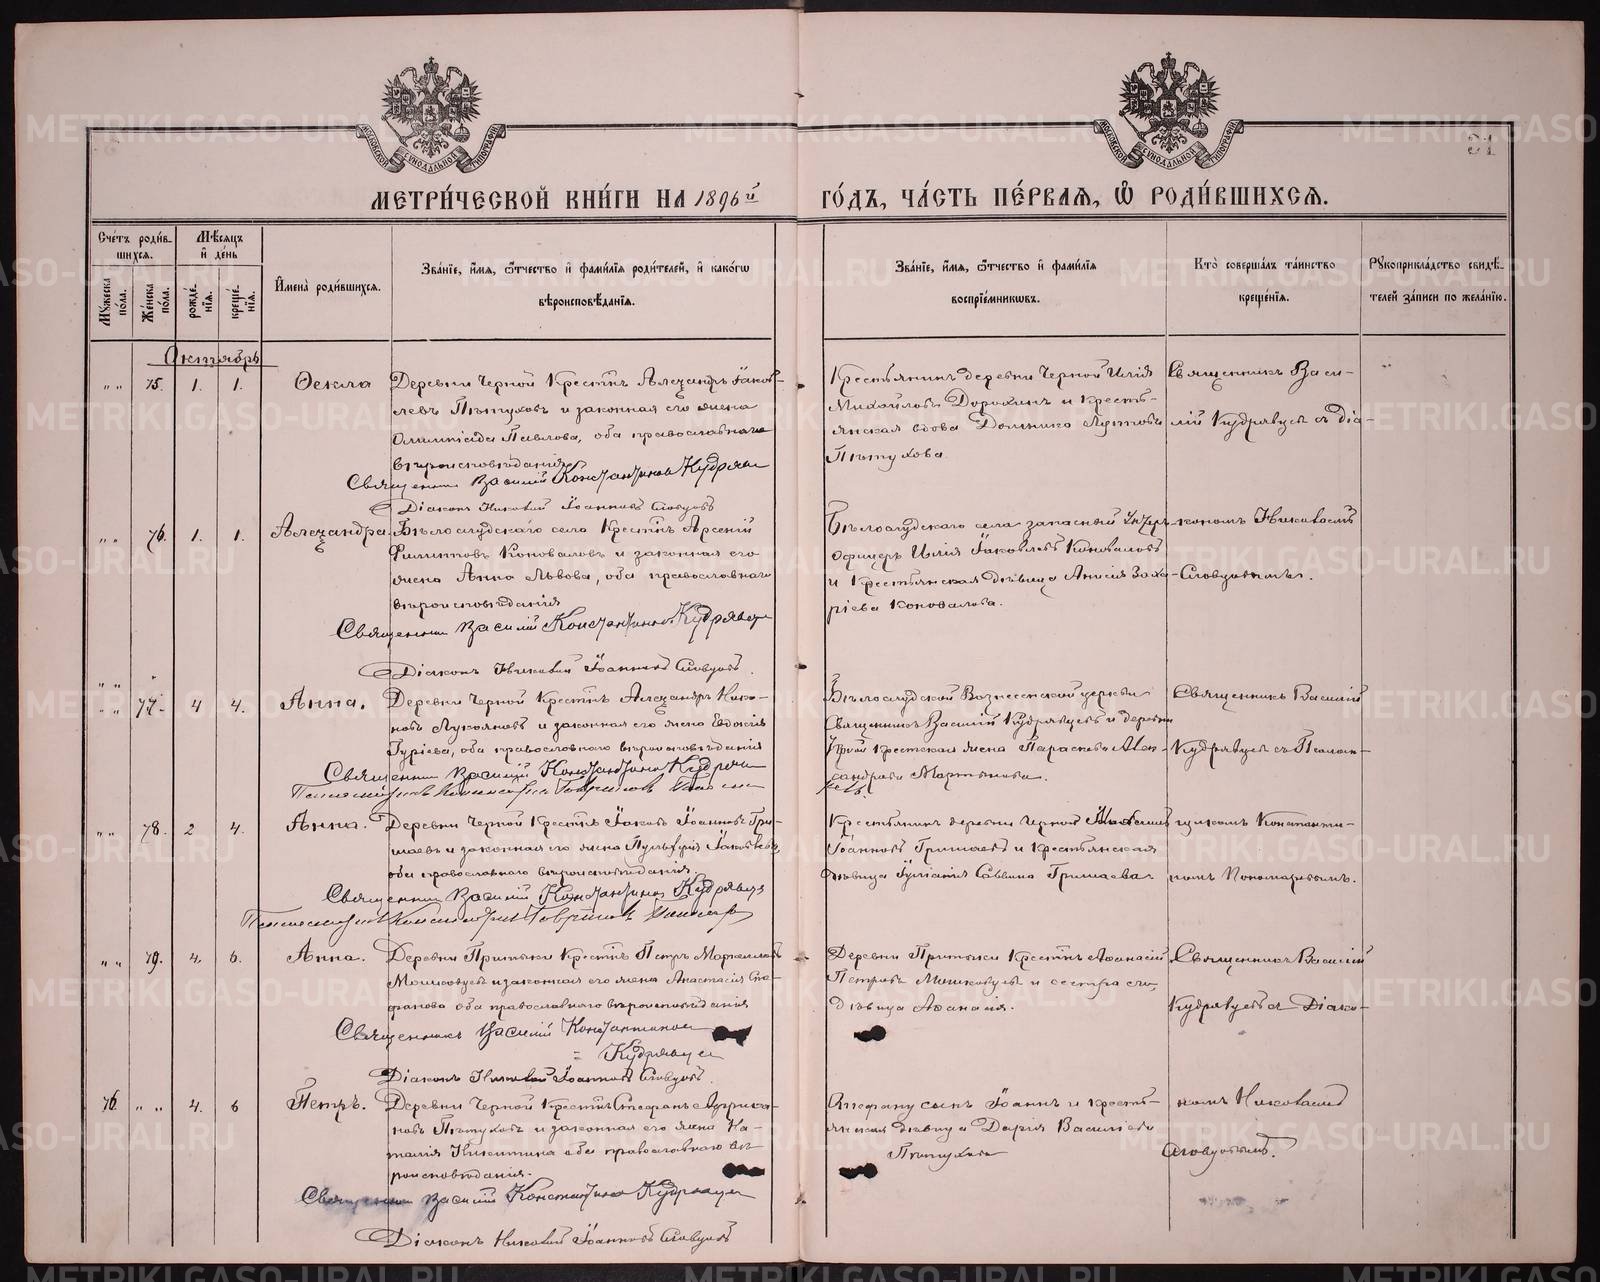 МЕТРИ́ЧЕСКОЙ КНИ́ГИ НА 1896й ГО́ДЪ, ЧА́СТЬ ПЕ́РВАЯ, Ѡ РОДИ́ВШИХСЯ.
31
Сче́тъ роди́в-
шихся.
Мѣ́сяцъ
и҆ де́нь
Мꙋ́жеска
по́ла.
Же́нска
по́ла.
рожде́-
нїѧ.
креще́-
нїѧ.
И҆мена̀ роди́вшихся.
Зва́нїе, и҆́мѧ, ѻ҆́тчество и҆ фами́лїѧ роди́телей, и҆ како́гѡ
вѣроисповѣ́данїѧ.
Зва́нїе, и҆́мѧ, ѻ҆́тчество и҆ фами́лїѧ
воспрїе́мникѡвъ.
Кто̀ соверша́лъ та́инство
креще́нїѧ.
Рꙋкоприкла́дство свидѣ́-
телей за́писи по жела́нїю.
Октябрь
" " 75. 1. 1. Ѳекла
Деревни Черной Крестнъ Алеѯандръ Іаков-
левъ Пѣтуховъ и законная его жена
Олимпіада Павлова, оба православнаго
вѣроисповѣданія
Священникъ Василій Константиновъ Кудрявцевъ
Діаконъ Николай Іоанновъ Словцовъ
Крестьянинъ деревни Черной Илія
Михайловъ Дорохинъ и кресть-
янская вдова
Пѣтухова
Священникъ Васи-
лій Кудрявцевъ съ Діа-
" " 76. 1. 1. Алеѯандра.
Бѣлослудскаго села Крестнъ Арсеній
Филиповъ Коноваловъ и законная его
жена Анна Львова, оба православнаго
вѣроисповѣданія
Священникъ Василій Константиновъ Кудрявцевъ
Діаконъ Николай Іоанновъ Словцовъ
Бѣлослудскаго села запасный Унтеръ-
офицеръ Илія Іаковлевъ Коноваловъ
и крестьянская дѣвица Анисія Заха-
ріева Коновалова.
кономъ Николаемъ
Словцовымъ.
" " 77. 4 4. Анна.
Деревни Черной Крестнъ Алеѯандръ Нико-
новъ Лукояновъ и законная его жена Евдокія
Гуріева, оба православнаго вѣроисповѣданія
Священникъ Василій Константиновъ Кудрявцевъ
Псаломщикъ Константинъ Гавриловъ
Бѣлослудской Вознесенской церкви
Священникъ Василій Кудрявцевъ и деревни
Черной крестская жена Параскева Алек-
сандрова Мартынова.
Священникъ Василій
Кудрявцевъ съ Псалом-
" " 78. 2 4. Анна.
Деревни Черной Крестнъ Іаковъ Іоанновъ Гри-
шаевъ и законная его жена Пульхерія Іаковлева,
оба православнаго вѣроисповѣданія.
Священникъ Василій Константиновъ Кудрявцевъ
Псаломщикъ Константинъ Гавриловъ
Крестьянинъ деревни Черной
Іоанновъ Гришаевъ и крестьянская
дѣвица Іуліанія Саввина Гришаева
щикомъ Константи-
номъ Пономаревымъ.
" " 79. 4. 6. Анна.
Деревни Притыки Крестнъ Петръ
и законная его жена Анастасія Сте-
фанова оба православнаго вѣроисповѣданія
Священникъ Василій Константиновъ
Кудрявцевъ
Діаконъ Николай Іоанновъ Словцовъ.
Деревни Притыки Крестнъ Аѳанасій
Петровъ и сестра его,
дѣвица Аѳанасія.
Священникъ Василій
Кудрявцевъ съ Діако-
76. " " 4. 6 Петръ.
Деревни Черной Крестнъ Стефанъ Африка-
новъ Пѣтуховъ и законная его жена На-
талія Никитина оба православнаго вѣ-
роисповѣданія.
Священникъ Василій Константиновъ Кудрявцевъ
Діаконъ Николай Іоанновъ Словцовъ
сынъ Іоаннъ и кресть-
янская дѣвица Дарія Васильева
Пѣтухова
номъ Николаемъ
Словцовымъ.